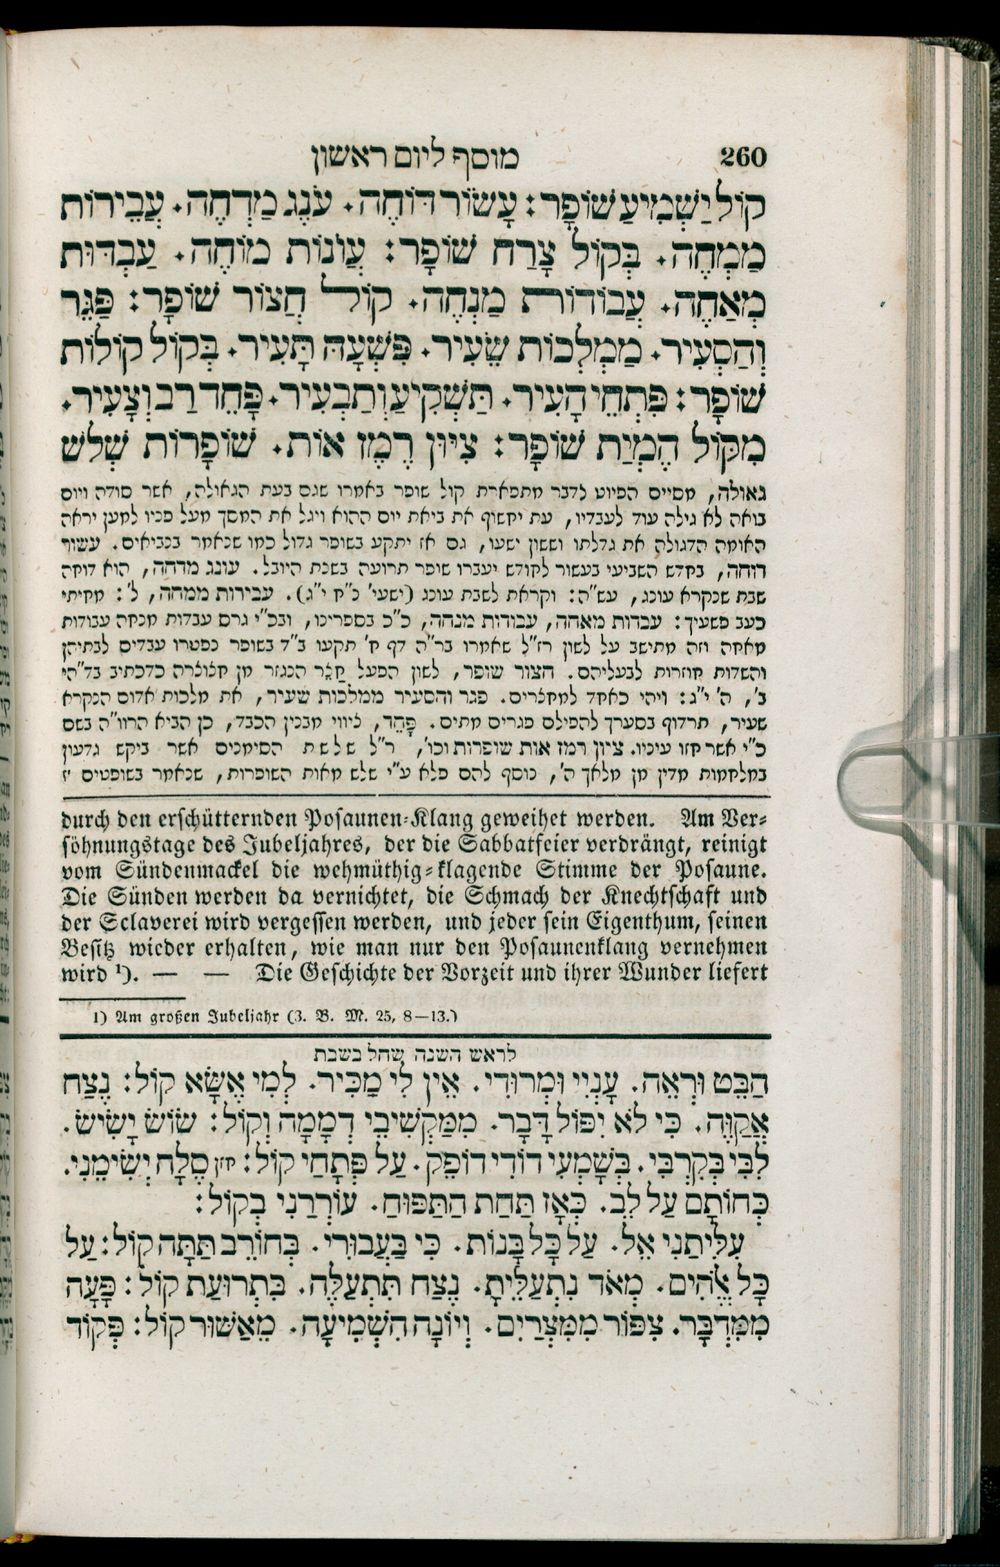 260 מוסף ליום ראשון
קוֹל יַשְׁמִיעַ שׁוֹפָר׃ עָשׂוֹר דּוֹחֶה. עֹנֶג מַדְחֶה. עֲבֵירוֹת
מַמְחֶה. בְּקוֹל צָרַח שׁוֹפָר׃ עֲוֹנוֹת מוֹחֶה. עַבְדּוּת
מְאַחֶה. עֲבוֹדוֹת מַנְחֶה. קוֹל חֲצוֹר שׁוֹפָר׃ פַּגֵּר
וְהַסְעִיר. מַמְלְכוֹת שֵׂעִיר. פִּשְׁעָהּ תָּעִיר. בְּקוֹל קוֹלוֹת
שׁוֹפָר׃ פִּתְחֵי הָעִיר. תַּשְׁקִיעַ וְתַבְעִיר. פָּחֵד רַב וְצָעִיר.
מִקּוֹל הֶמְיַת שׁוֹפָר׃ צִיּוּן רֶמֶז אוֹת. שׁוֹפָרוֹת שְׁלֹשׁ
גאולה, מסיים הפיוט לדבר מתפארת קול שופר באמרו שגם בעת הגאולה, אשר סודה ויום
בואה לא גילה עוד לעבדיו, עת יחשוף את ביאת יום ההוא ויגל את המסך מעל פניו למען יראה
האומה הדגולה את גדלתו וששון ישעו, גם אז יתקע בשופר גדול כמו שנאמר בנביאים. עשור
דוחה, בחדש השביעי בעשור לחודש יעברו שופר תרועה בשנת היובל. עונג מדחה, הוא דוחה
שבת שנקרא עונג, עש"ה: וקראת לשבת עונג (ישעי' נ"ח י"ג). עבירות ממחה, ל': מחיתי
כעב פשעיך: עבדות מאחה, עבודות מנחה, כ"כ בספרינו, ובכ"י גרס עבדות מנחה עבודות
מאחה וזה מתישב על לשון רז"ל שאמרו בר"ה דף ח' תקעו ב"ד בשופר נפטרו עבדים לבתיהן
והשדות חוזרות לבעליהם. חצור שופר, לשון הפעל חָצֵר הנגזר מן חצוצרה כדכתיב בד"הי
ב', ה' י"ג: ויהי כאחד למחצרים. פגר והסעיר ממלכות שעיר, את מלכות אדום הנקרא
שעיר, תרדוף בסערך להפילם פגרים מתים. פַּחֵד, ציווי מבנין הכבד, כן הביא הרוו"ה בשם
כ"י אשר חזו עיניו. ציון רמז אות שופרות וכו', ר"ל שלשת הסימנים אשר ביקש גדעון
במלחמות מדין מן מלאך ה', נוסף להם פלא ע"י שלש מאות השופרות, שנאמר בשופטים ז'
durch den erschütternden Posaunen-Klang geweihet werden. Am Ver-
söhnungstage des Jubeljahres, der die Sabbatfeier verdrängt, reinigt
vom Sündenmackel die wehmüthig-klagende Stimme der Posaune.
Die Sünden werden da vernichtet, die Schmach der Knechtschaft und
der Sclaverei wird vergessen werden, und jeder sein Eigenthum, seinen
Besitz wieder erhalten, wie man nur den Posaunenklang vernehmen
wird ¹). — — Die Geschichte der Vorzeit und ihrer Wunder liefert
1) Am großen Jubeljahr (3. B. M. 25, 8—13.)
לראש השנה שחל בשבת
הַבֵּט וּרְאֵה. עָנְיִי וּמְרוּדִי. אֵין לִי מַכִּיר. לְמִי אֶשָּׂא קוֹל׃ נֶצַח
אֲקַוֶּה. כִּי לֹא יִפּוֹל דָּבָר. מִמַּקְשִׁיבֵי דְמָמָה וְקוֹל׃ שׂוֹשׂ יָשִׂישׂ.
לִבִּי בְּקִרְבִּי. בְּשָׁמְעִי דוֹדִי דוֹפֵק. עַל פְּתָחַי קוֹל׃ חזן סְלָח יְשִׂימֵנִי.
כְּחוֹתָם עַל לֵב. כְּאָז תַּחַת הַתַּפּוּחַ. עוֹרְרַנִי בְקוֹל׃
עִלִּיתַנִי אֵל. עַל כָּל בָּנוֹת. כִּי בַּעֲבוּרִי. בְּחוֹרֵב תַּתָּה קוֹל׃ עַל
כָּל אֱלֹהִים. מְאֹד נִתְעַלֵּיתָ. נֶצַח תִּתְעַלֶּה. בִּתְרוּעַת קוֹל׃ פָּעָה
מִמִּדְבָּר. צִפּוֹר מִמִּצְרַיִם. וְיוֹנָה הִשְׁמִיעָה. מֵאַשּׁוּר קוֹל׃ פְּקוֹד